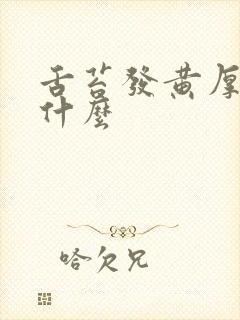 舌苔發黃厚
什麼
哈欠兄